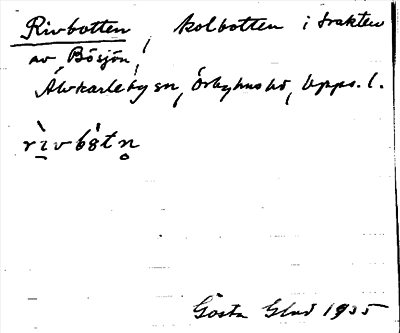 Rivbotten, kolbotten i trakten
av Bösjön,
Älvkarleby sn, Örbyhus hd, Upps. l.
rìvbȯtn̥
Gösta Glad 1935